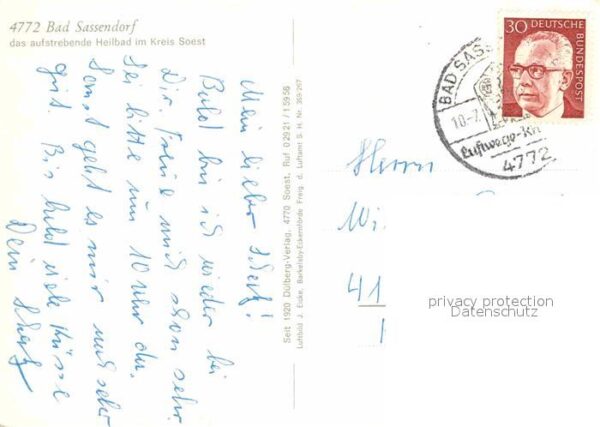 4772 Bad Sassendorf
das aufstrebende Heilbad im Kreis Soest
Mein lieber Schatz!
Bald bin ich wieder bei
Dir. Freue mich schon sehr.
Sei bitte um 10 Uhr da.
Sonst geht es mir noch sehr
gut. Bis bald viele Küsse
Dein Schatz
Seit 1920 Dülberg-Verlag, 4770 Soest, Ruf 02921/15958
Luftbild J. Eicke, Barkelsby-Eckernförde Freig. d. Luftamt S. H. Nr. 359/257
30 DEUTSCHE
BUNDESPOST
BAD SASS
10.-7.
Luftwege-Kr
4772
Herrn
Wi
41
1
privacy protection
Datenschutz